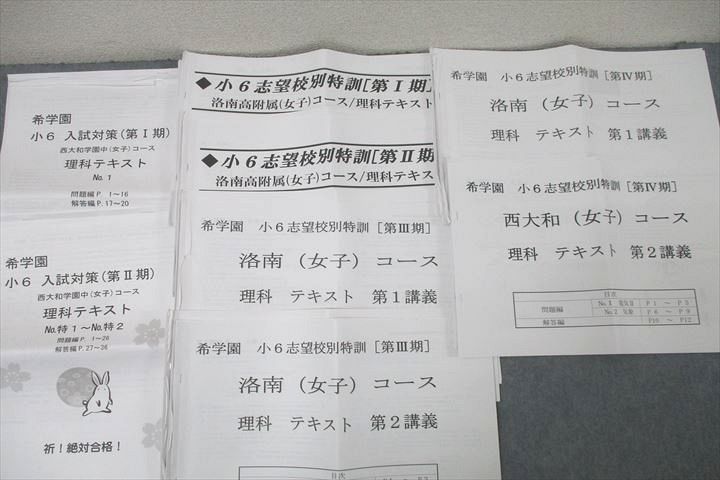 希学園
小6 入試対策(第Ⅰ期)
西大和学園中(女子)コース
理科テキスト
No.1
問題編 P. 1～16
解答編 P.17～20
希学園
小6 入試対策(第Ⅱ期)
西大和学園中(女子)コース
理科テキスト
No.特1～No.特2
問題編 P. 1～26
解答編 P.27～36
祈！絶対合格！
◆小6志望校別特訓[第Ⅰ期]
洛南高附属(女子)コース/理科テキスト
◆小6志望校別特訓[第Ⅱ期
洛南高附属(女子)コース/理科テキス
希学園 小6志望校別特訓［第Ⅲ期］
洛南（女子）コース
理科 テキスト 第1講義
希学園 小6志望校別特訓［第Ⅲ期］
洛南（女子）コース
理科 テキスト 第2講義
目次
希学園 小6志望校別特訓［第Ⅳ期］
洛南（女子）コース
理科 テキスト 第1講義
希学園 小6志望校別特訓［第Ⅳ期］
西大和（女子）コース
理科 テキスト 第2講義
目次
問題編 No.1 電気Ⅱ P 1 ～ P 5
No.2 気象 P 6 ～ P 9
解答編 P10 ～ P12